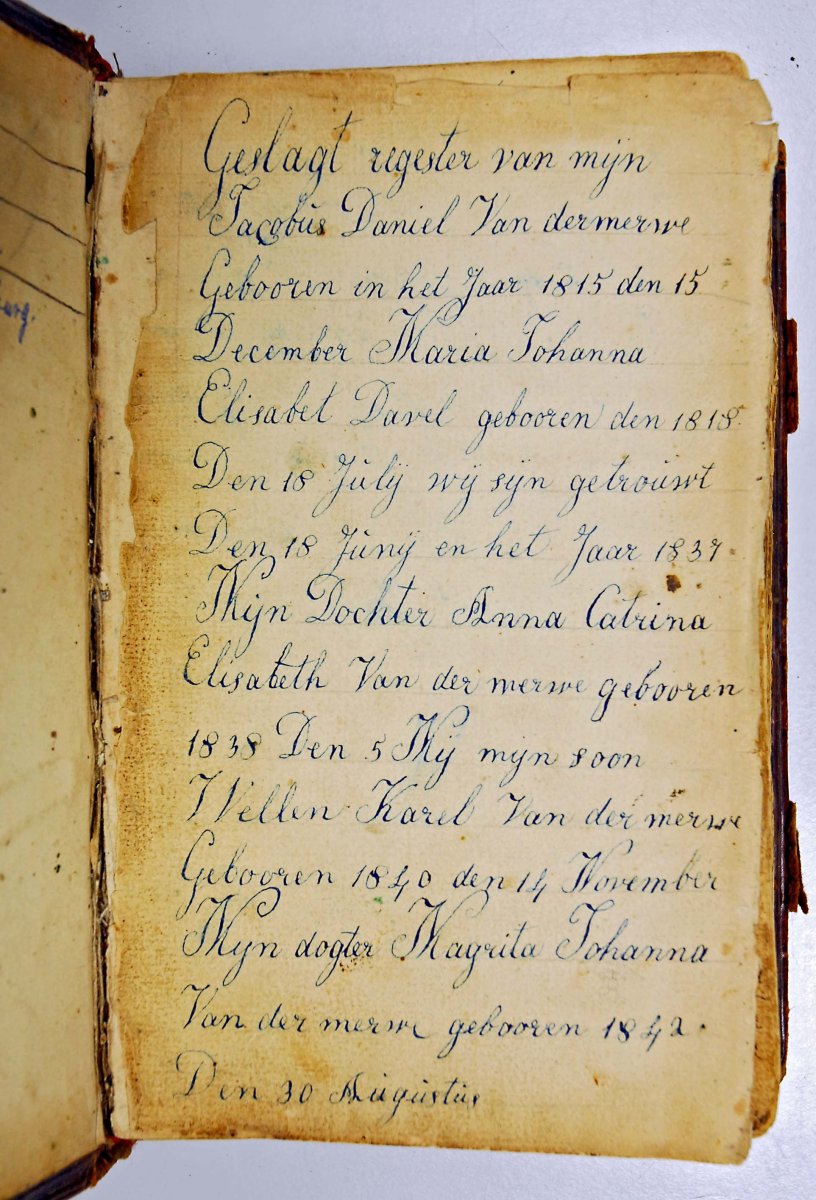 Geslagt regester van mijn
Jacobüs Daniel Van dermerwe
Gebooren in het Jaar 1815 den 15
December Maria Johanna
Elisabet Davel gebooren den 1818
Den 18 Jülÿ wÿ sÿn getroüwt
Den 18 Jünÿ en het Jaar 1837
Mÿn Dochter Anna Catrina
Elisabeth Van der merwe gebooren
1838 Den 5 Mÿ mÿn soon
Wellen Karel Van der merwe
Gebooren 1840 den 14 November
Mÿn dogter Magrita Johanna
Van der merwe gebooren 1842
Den 30 Aügüstüs